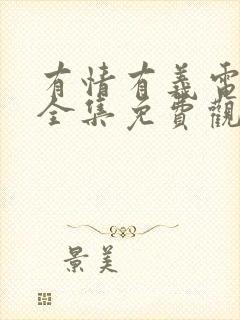 有情有義電
全集免費觀
景美